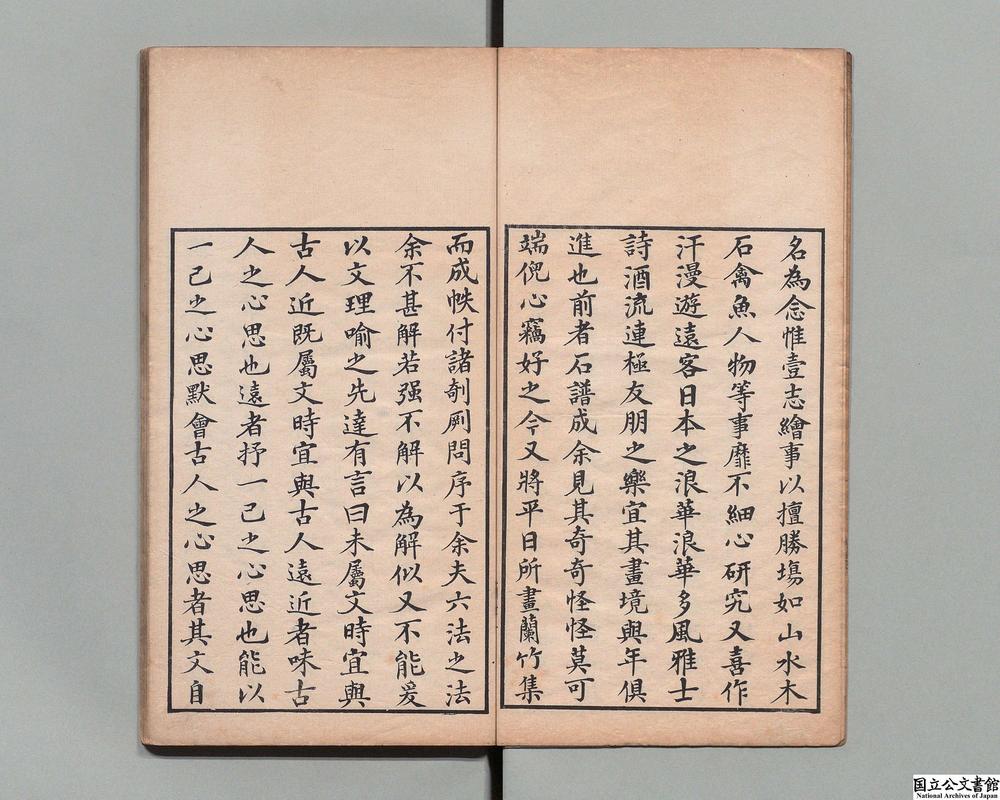 名為念惟壹志繪事以擅勝塲如山水木
石禽魚人物等事靡不細心研究又喜作
汗漫遊遠客日本之浪華浪華多風雅士
詩酒流連極友朋之樂宜其畫境與年俱
進也前者石譜成余見其奇奇怪怪莫可
端倪心竊好之今又將平日所畫蘭竹集
而成帙付諸剞劂問序于余夫六法之法
余不甚解若强不解以為解似又不能爰
以文理喻之先達有言曰未屬文時宜與
古人近既屬文時宜與古人遠近者味古
人之心思也遠者抒一己之心思也能以
一己之心思默會古人之心思者其文自
国立公文書館
National Archives of Japan